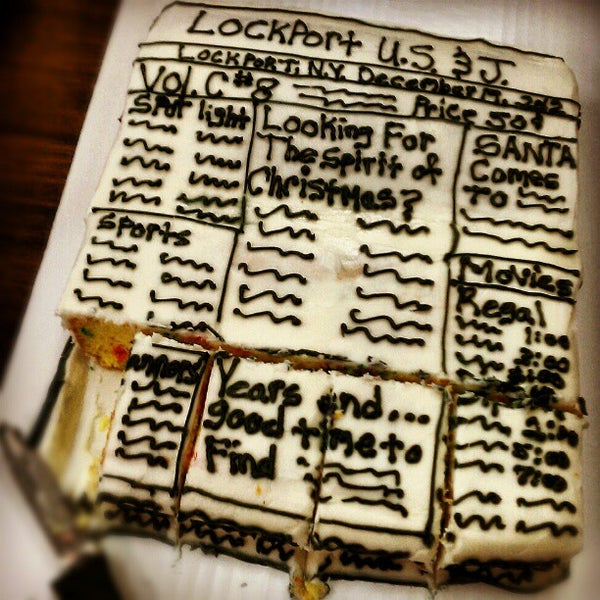 LOCKPORT U.S. & J.
LOCKPORT, N.Y. December 19, 2012
VOL. C #8
Price 50¢
Spot light
Looking For
The Spirit of
Christmas?
SANTA
Comes
TO
Sports
Movies
Regal
1:00
Years end...
good time to
Find
5:00
7:00